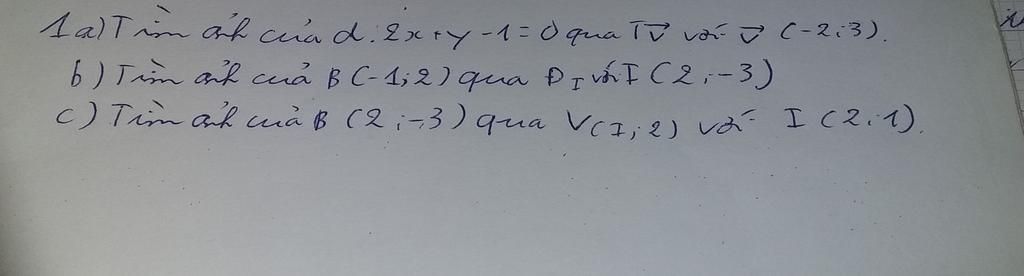 1a) Tìm ảnh của d: 2x+y-1=0 qua Tv⃗ với v⃗ (-2;3).
b) Tìm ảnh của B(-1;2) qua ĐI với I(2;-3)
c) Tìm ảnh của B (2;-3) qua V(I;2) với I(2;1).